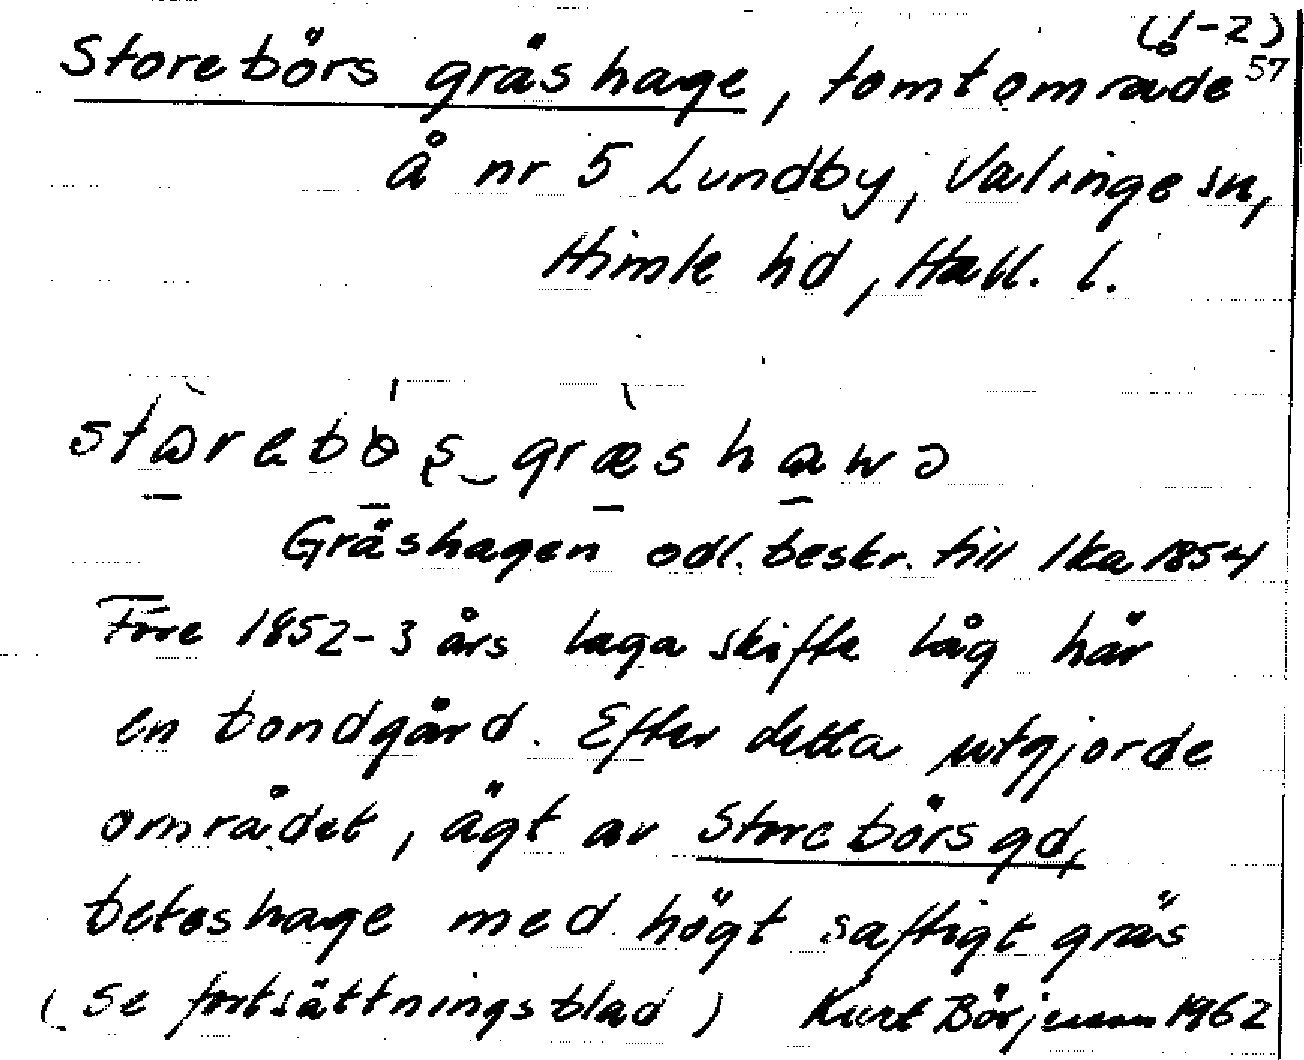 (1-2)
Storebörs gräshage, tomtområde 57
å nr 5 Lundby, Valinge sn,
Himle hd, Hall. l.
stɷrebös_græshawə
Gräshagen odl. beskr. till lka 1854
Före 1852-3 års laga skifte låg här
en bondgård. Efter detta utgjorde
området, ägt av Storebörs gd,
beteshage med högt saftigt gräs
(Se fortsättningsblad) Kurt Börjesson 1962